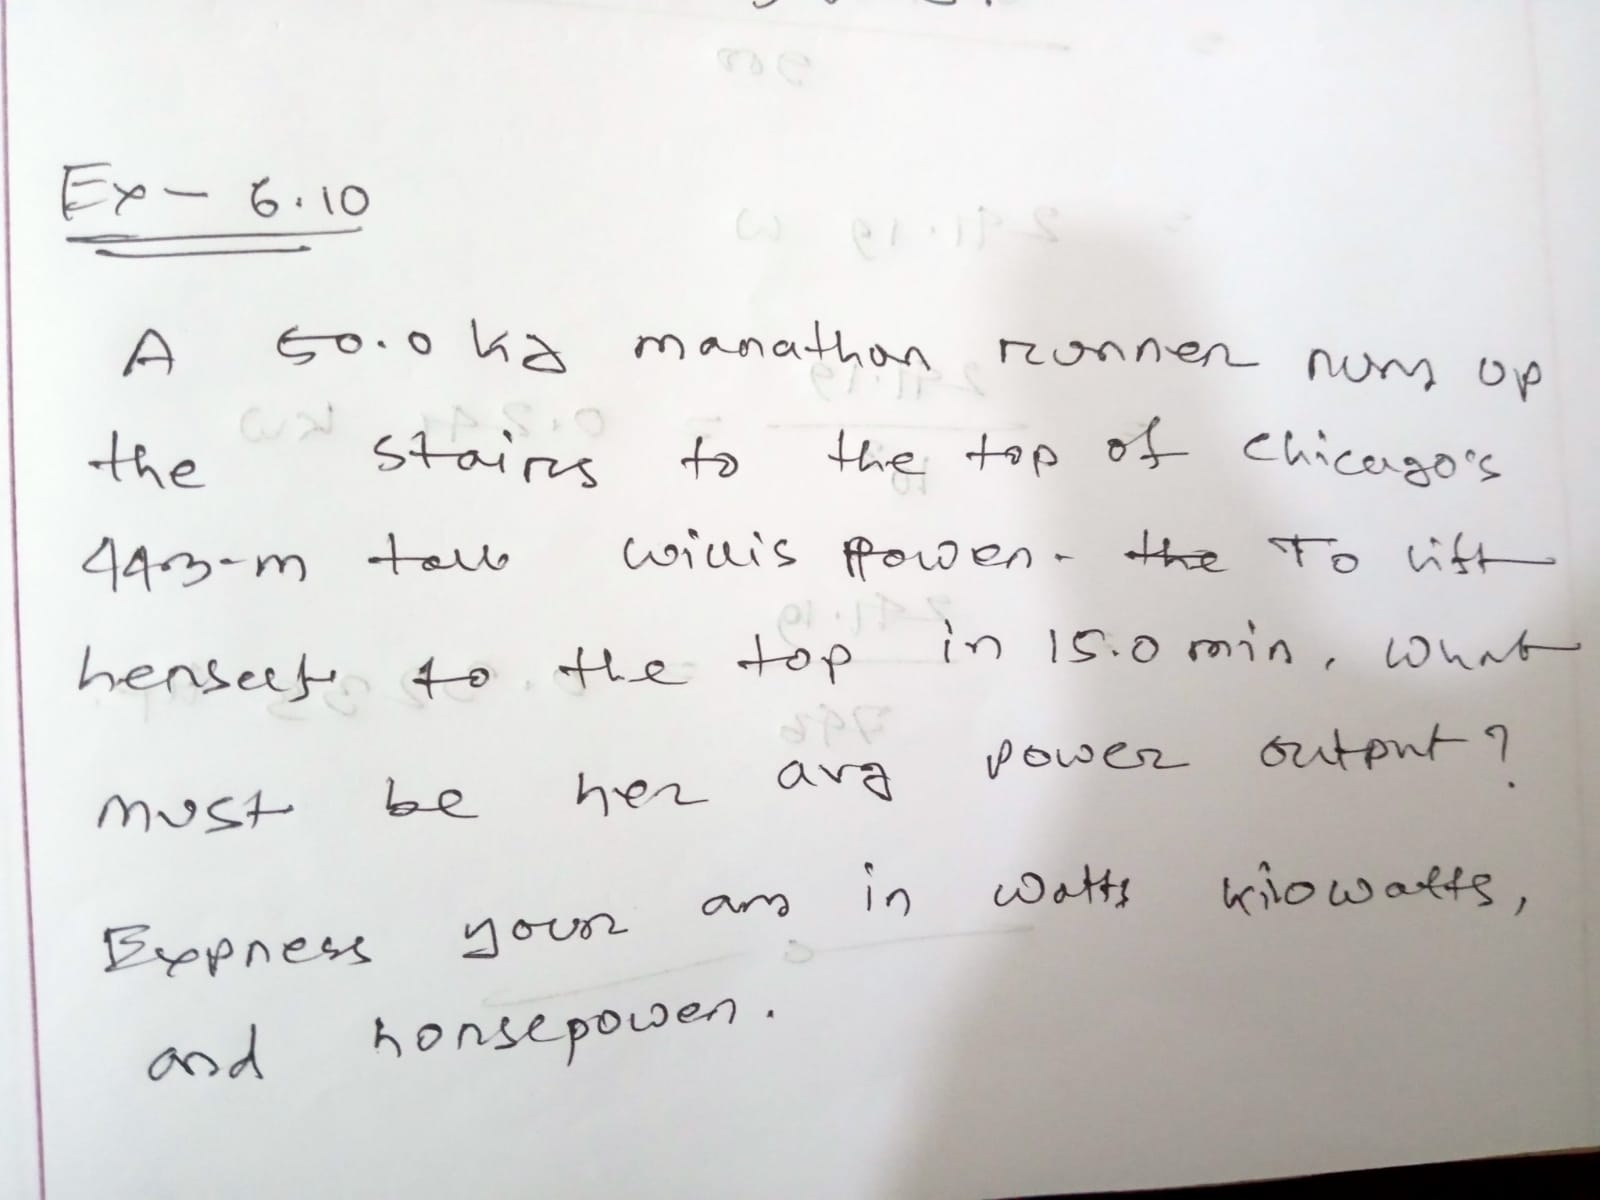 Ex- 6.10
A 50.0 kg marathon runner runs up
the stairs to the top of Chicago's
443-m tall Willis Power. the To lift
herself to the top in 15.0 min, what
must be her avg power output?
Express your ans in watts kilowatts,
and horsepower.